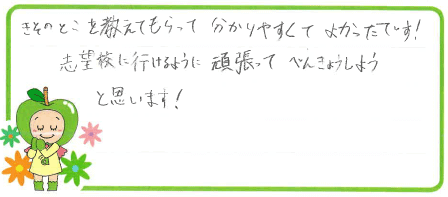 きそのとこを教えてもらって 分かりやすくて よかったです!
志望校に行けるように 頑張って べんきょうしよう
と思います!